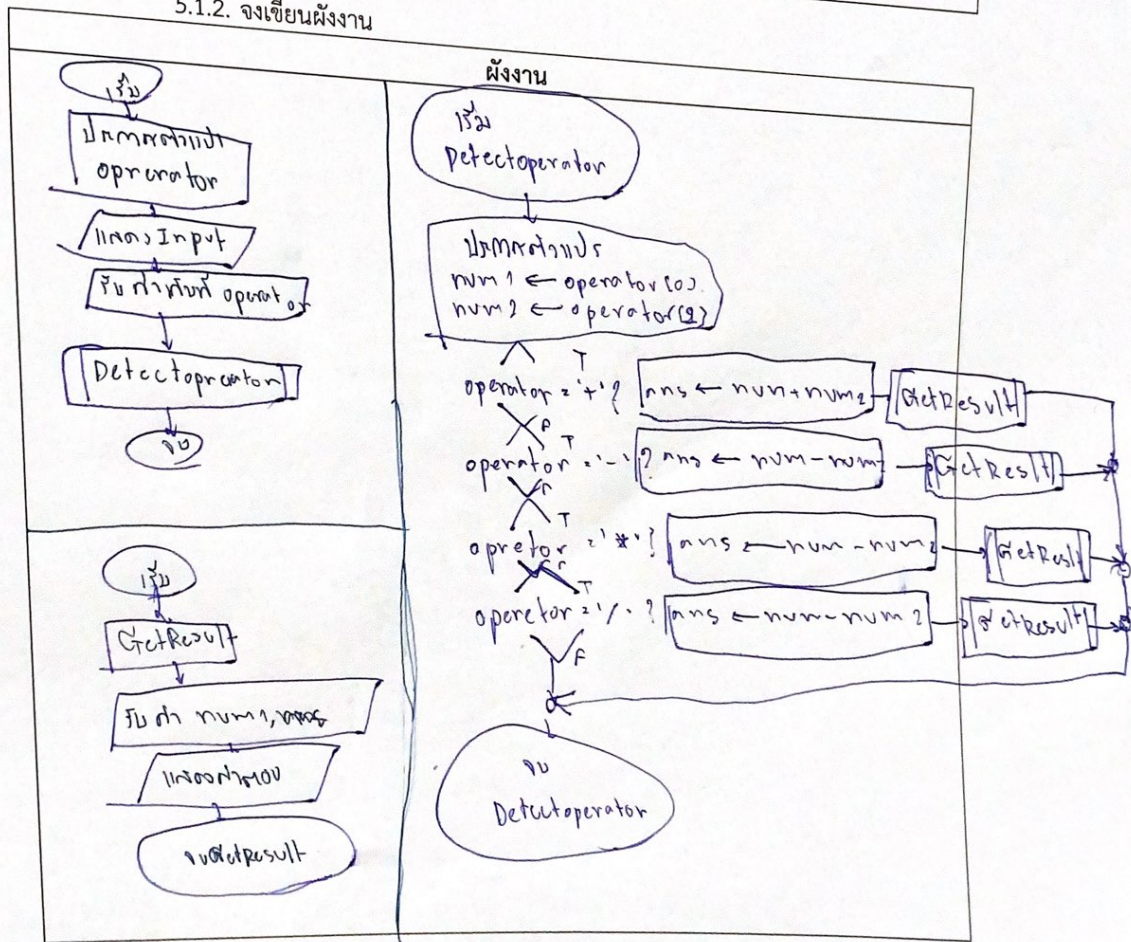 5.1.2. จงเขียนผังงาน
ผังงาน
เริ่ม
ประกาศตัวแปร
oprerator
แสดง Input
รับค่าเก็บที่ operator
Detectoprerator
จบ
เริ่ม
GetResult
รับค่า num1,
แสดงคำตอบ
จบGetResult
เริ่ม
Detectoperator
ประกาศตัวแปร
num1 ← operator[0].
num2 ← operator[2]
operator = '+' ? T ans ← num+num2 GetResult
F
operator = '-' ? T ans ← num-num GetResult
F
opretor = '*' ? T ans ← num-num2 GetResl
F
operetor = '/. ? T ans ← num-num2 GetResult
F
จบ
Detectoperator